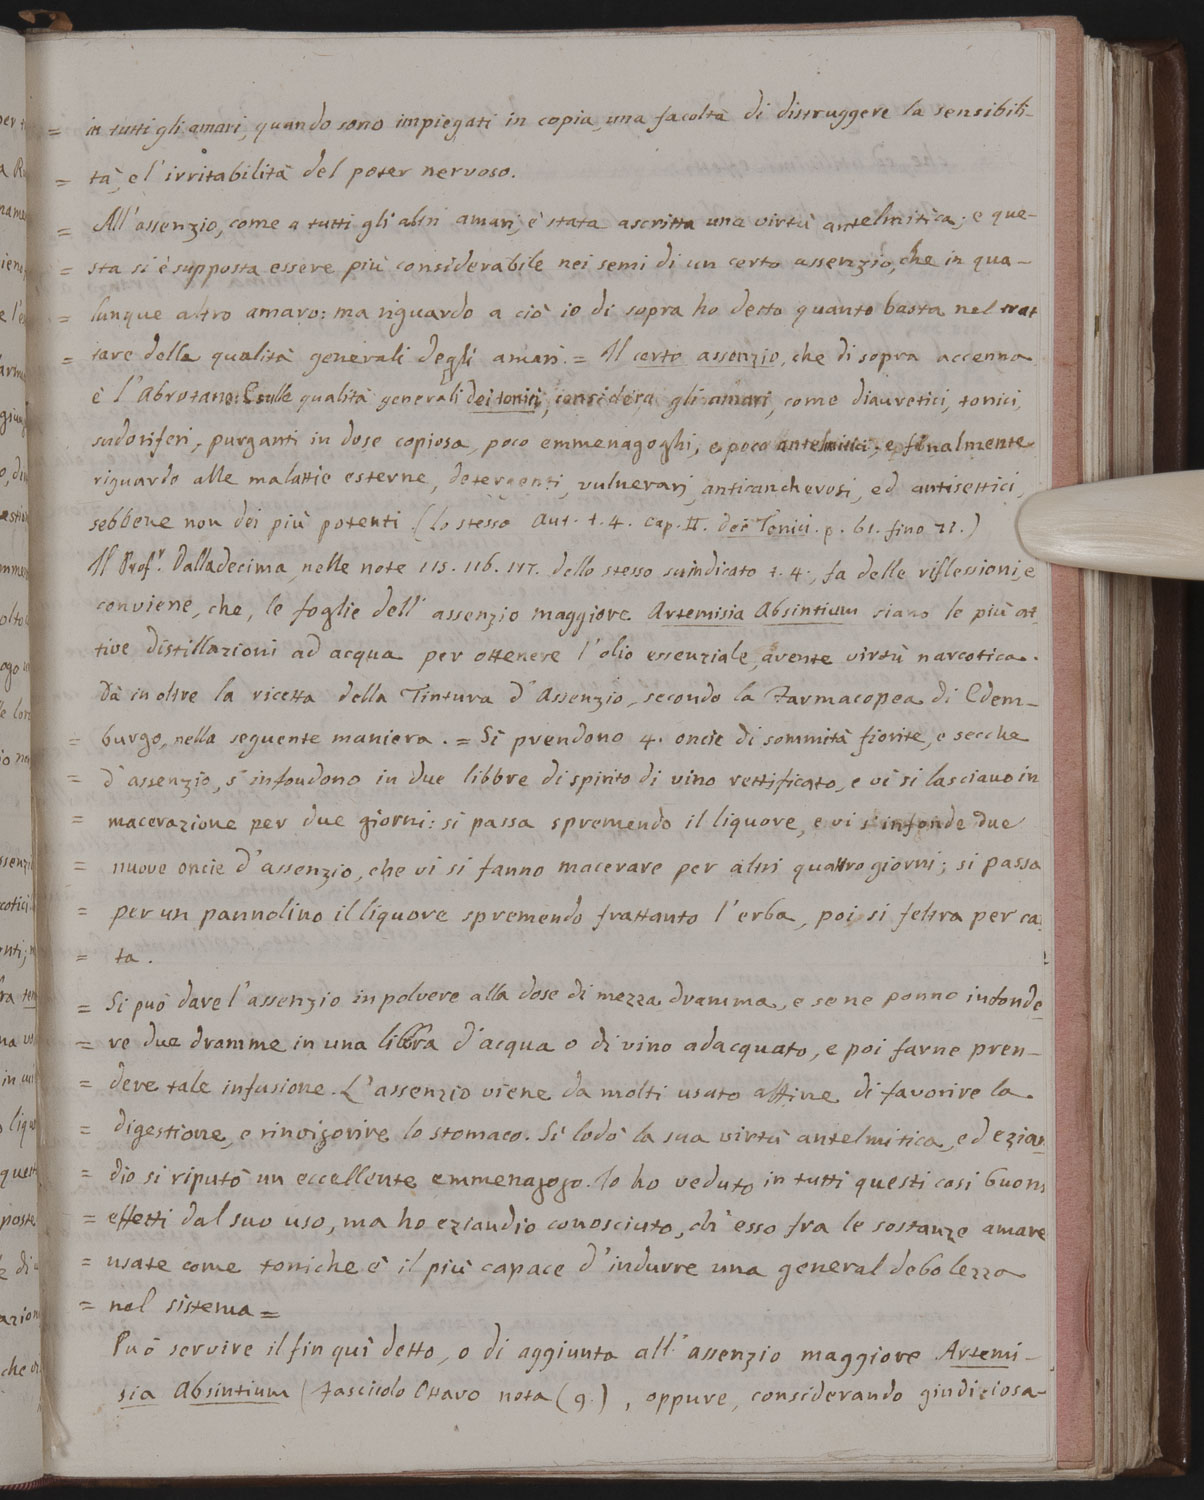 = in tutti gli amari, quando sono impiegati in copia, una facoltà di distruggere la sensibili-
= tà, e l'irritabilità del poter nervoso.
= All'assenzio, come a tutti gli altri amari, è stata ascritta una virtù antelmitica; e que-
= sta si è supposta essere più considerabile nei semi di un certo assenzio, che in qua-
= lunque altro amaro: ma riguardo a ciò io di sopra ho detto quanto basta nel trat
= tare delle qualità generali degli amari. = Il certo assenzio, che di sopra accenna
è l'Abrotano: E sulle qualità generali dei tonici, considera gli amari, come diauretici, tonici,
sudoriferi, purganti in dose copiosa, poco emmenagoghi, e poco antelmitici; e finalmente
riguardo alle malattie esterne, detergenti, vulnerarj, anticancherosi, ed antisettici,
sebbene non dei più potenti (lo stesso Aut. t. 4. Cap. II. dei Tonici. p. 61. fino 71.)
Il Profr. Dalladecima, nelle note 115. 116. 117. dello stesso suindicato t. 4., fa delle riflessioni, e
conviene, che, le foglie dell' assenzio maggiore Artemisia Absintium siano le più at
tive distillazioni ad acqua per ottenere l'olio essenziale, avente virtù narcotica.
Dà in oltre la ricetta della Tintura d'Assenzio, secondo la Farmacopea di Edem-
= burgo, nella seguente maniera. = Si prendono 4. oncie di sommità fiorite, e secche
= d'assenzio, s'infondono in due libbre di spirito di vino rettificato, e vi si lasciano in
= macerazione per due giorni: si passa spremendo il liquore, e vi s'infonde due
= nuove oncie d'assenzio, che vi si fanno macerare per altri quattro giorni; si passa
= per un pannolino il liquore spremendo frattanto l'erba, poi si feltra per ca
= ta.
= Si può dare l'assenzio in polvere alla dose di mezza dramma, e se ne ponno infonde
= re due dramme in una libbra d'acqua o di vino adacquato, e poi farne pren-
= dere tale infusione. L'assenzio viene da molti usato affine di favorire la
= digestione, e rinvigorire lo stomaco. Si lodò la sua virtù antelmitica, ed ezian
= dio si riputò un eccellente emmenagogo. Io ho veduto in tutti questi casi buoni
= effetti dal suo uso, ma ho eziandio conosciuto, ch'esso fra le sostanze amare
= usate come toniche è il più capace d'indurre una general debolezza
= nel sistema =
Può servire il fin quì detto, o di aggiunta all' assenzio maggiore Artemi-
sia Absintium (fascicolo Ottavo nota (9.), oppure, considerando giudiziosa-